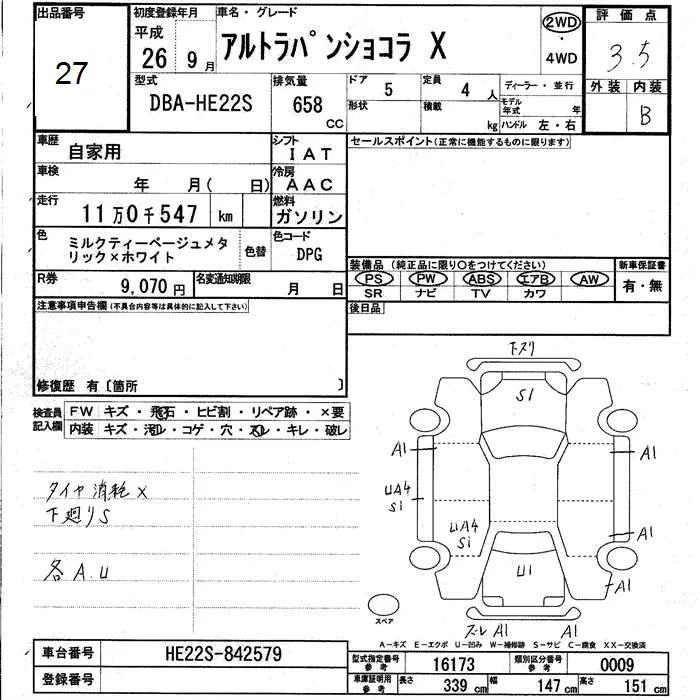 出品番号
27
初度登録年月
平成
26年9月
車名・グレード
アルトラパンショコラ X
2WD
・
4WD
評価点
3.5
外装 内装
B
型式
DBA-HE22S
排気量
658
CC
ドア
5
形状
定員
4人
積載
kg
ディーラー・並行
モデル年式 年
ハンドル 左・右
車歴
自家用
シフト
IAT
セールスポイント(正常に機能するものに限ります)
車検
年 月( 日)
冷房
AAC
走行
11万0千547 km
燃料
ガソリン
色
ミルクティーベージュメタ
リック×ホワイト
色替
色コード
DPG
装備品 (純正品に限り○をつけてください)
PS PW ABS エアB AW
SR ナビ TV カワ
新車保証書
有・無
R券
9,070円
名変通知期限
月 日
後日品
注意事項申告欄(不具合内容等は具体的に記入して下さい)
修復歴 有〔箇所 〕
検査員
記入欄
FW キズ・飛石・ヒビ割・リペア跡・×要
内装 キズ・汚れ・コゲ・穴・スレ・キレ・破レ
タイヤ消耗×
下廻りS
各A.U
下スリ
S1
A1
A1
UA4
S1
UA4
S1
A1
A1
U1
ズレ A1
A1
スペア
A-キズ E-エクボ U-凹み W-補修跡 S-サビ C-腐食 XX-交換済
車台番号
HE22S-842579
登録番号
型式指定番号
参考
16173
類別区分番号
参考
0009
車庫証明用
参考
長さ
339cm
幅
147cm
高さ
151cm